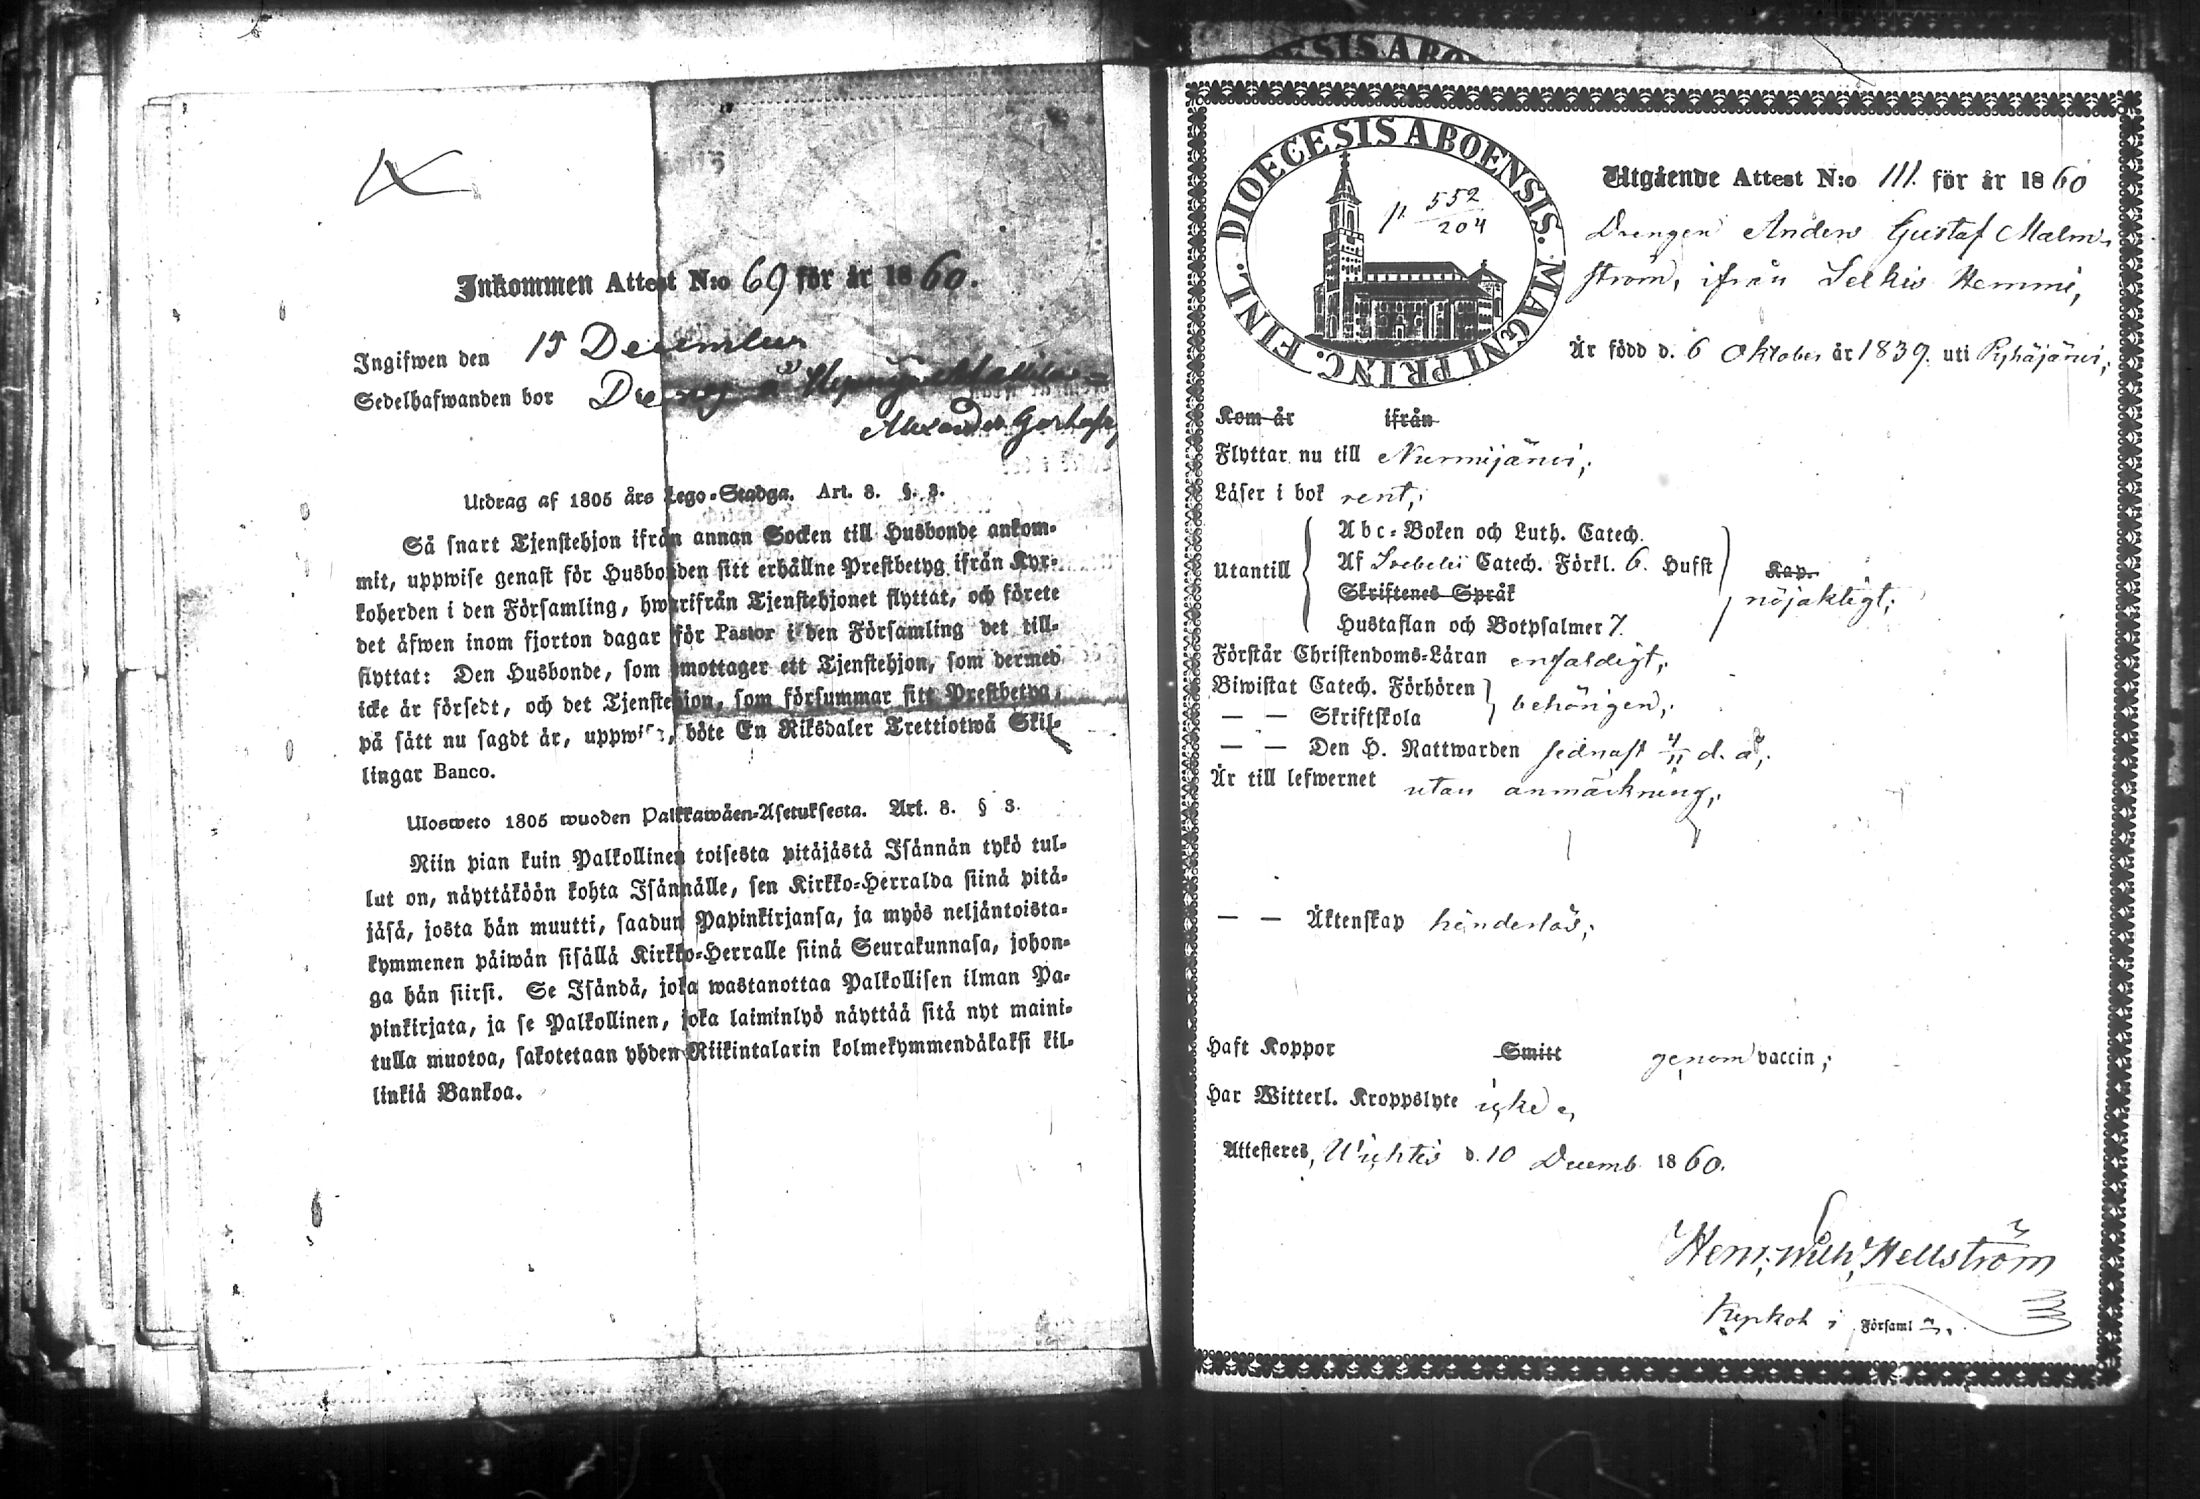 Inkommen Attest N:o 69 för år 1860.
Ingifwen den 15 December
Sedelhafwanden bor Dreng å
Alexander
Utdrag af 1805 års Lego-Stadga. Art. 8. §. 3.
Så snart Tjenstehjon ifrån annan Socken till Husbonde ankom-
mit, uppwise genast för Husbonden sitt erhållne Prestbetyg ifrån Kyr-
koherden i den Församling, hwarifrån Tjenstehjonet flyttat, och förete
det äfwen inom fjorton dagar för Pastor i den Församling det till-
flyttat: Den Husbonde, som emottager ett Tjenstehjon, som dermed
icke är försedt, och det Tjenstehjon, som försummar sitt Prestbetyg,
på sätt nu sagdt är, uppwisa, böte En Riksdaler Trettiotwå Skil-
lingar Banco.
Ulosweto 1805 wuoden Palkkawäen-Asetuksesta. Art. 8. § 3.
Niin pian kuin Palkollinen toisesta pitäjästä Isännän tykö tul-
lut on, näyttäköön kohta Isännälle, sen Kirkko-Herralda siinä pitä-
jäsä, josta hän muutti, saadun Papinkirjansa, ja myös neljäntoista-
kymmenen päiwän sisällä Kirkko-Herralle siinä Seurakunnasa, johon-
ga hän siirsi. Se Isändä, joka wastanottaa Palkollisen ilman Pa-
pinkirjata, ja se Palkollinen, joka laiminlyö näyttää sitä nyt maini-
tulla muotoa, sakotetaan yhden Riikintalarin kolmekymmendäkaksi kil-
linkiä Bankoa.
DIOECESIS ABO
DIOECESIS ABOENSIS. MAGNI PRINC. FINL.
p. 552
204
Utgående Attest N:o 111. för år 1860
Drengen Anders Gustaf Malm-
ström, ifrån Selkis Hemmi,
Är född d. 6 Oktober år 1839. uti Pyhäjärvi,
Kom år ifrån
Flyttar nu till Nurmijärvi,
Läser i bok rent,
Utantill
Abc-Boken och Luth. Catech.
Af Svebelii Catech. Förkl. 6. Hufst
Skriftenes Språk
Hustaflan och Botpsalmer 7.
Kap.
nöjaktigt;
Förstår Christendoms-Läran enfaldigt,
Biwistat Catech. Förhören
— — Skriftskola
behörigen,
— — Den H. Nattwarden sednast 4/11 d. å.
Är till lefwernet utan anmärkning,
— — Äktenskap hinderlös;
Haft Koppor Smitt genom vaccin;
Har Witterl. Kroppslyte icke
Attesteras, Wichtis d. 10 Decemb. 1860.
Henr. Wilh. Hellström
Kyrkoh i Församl